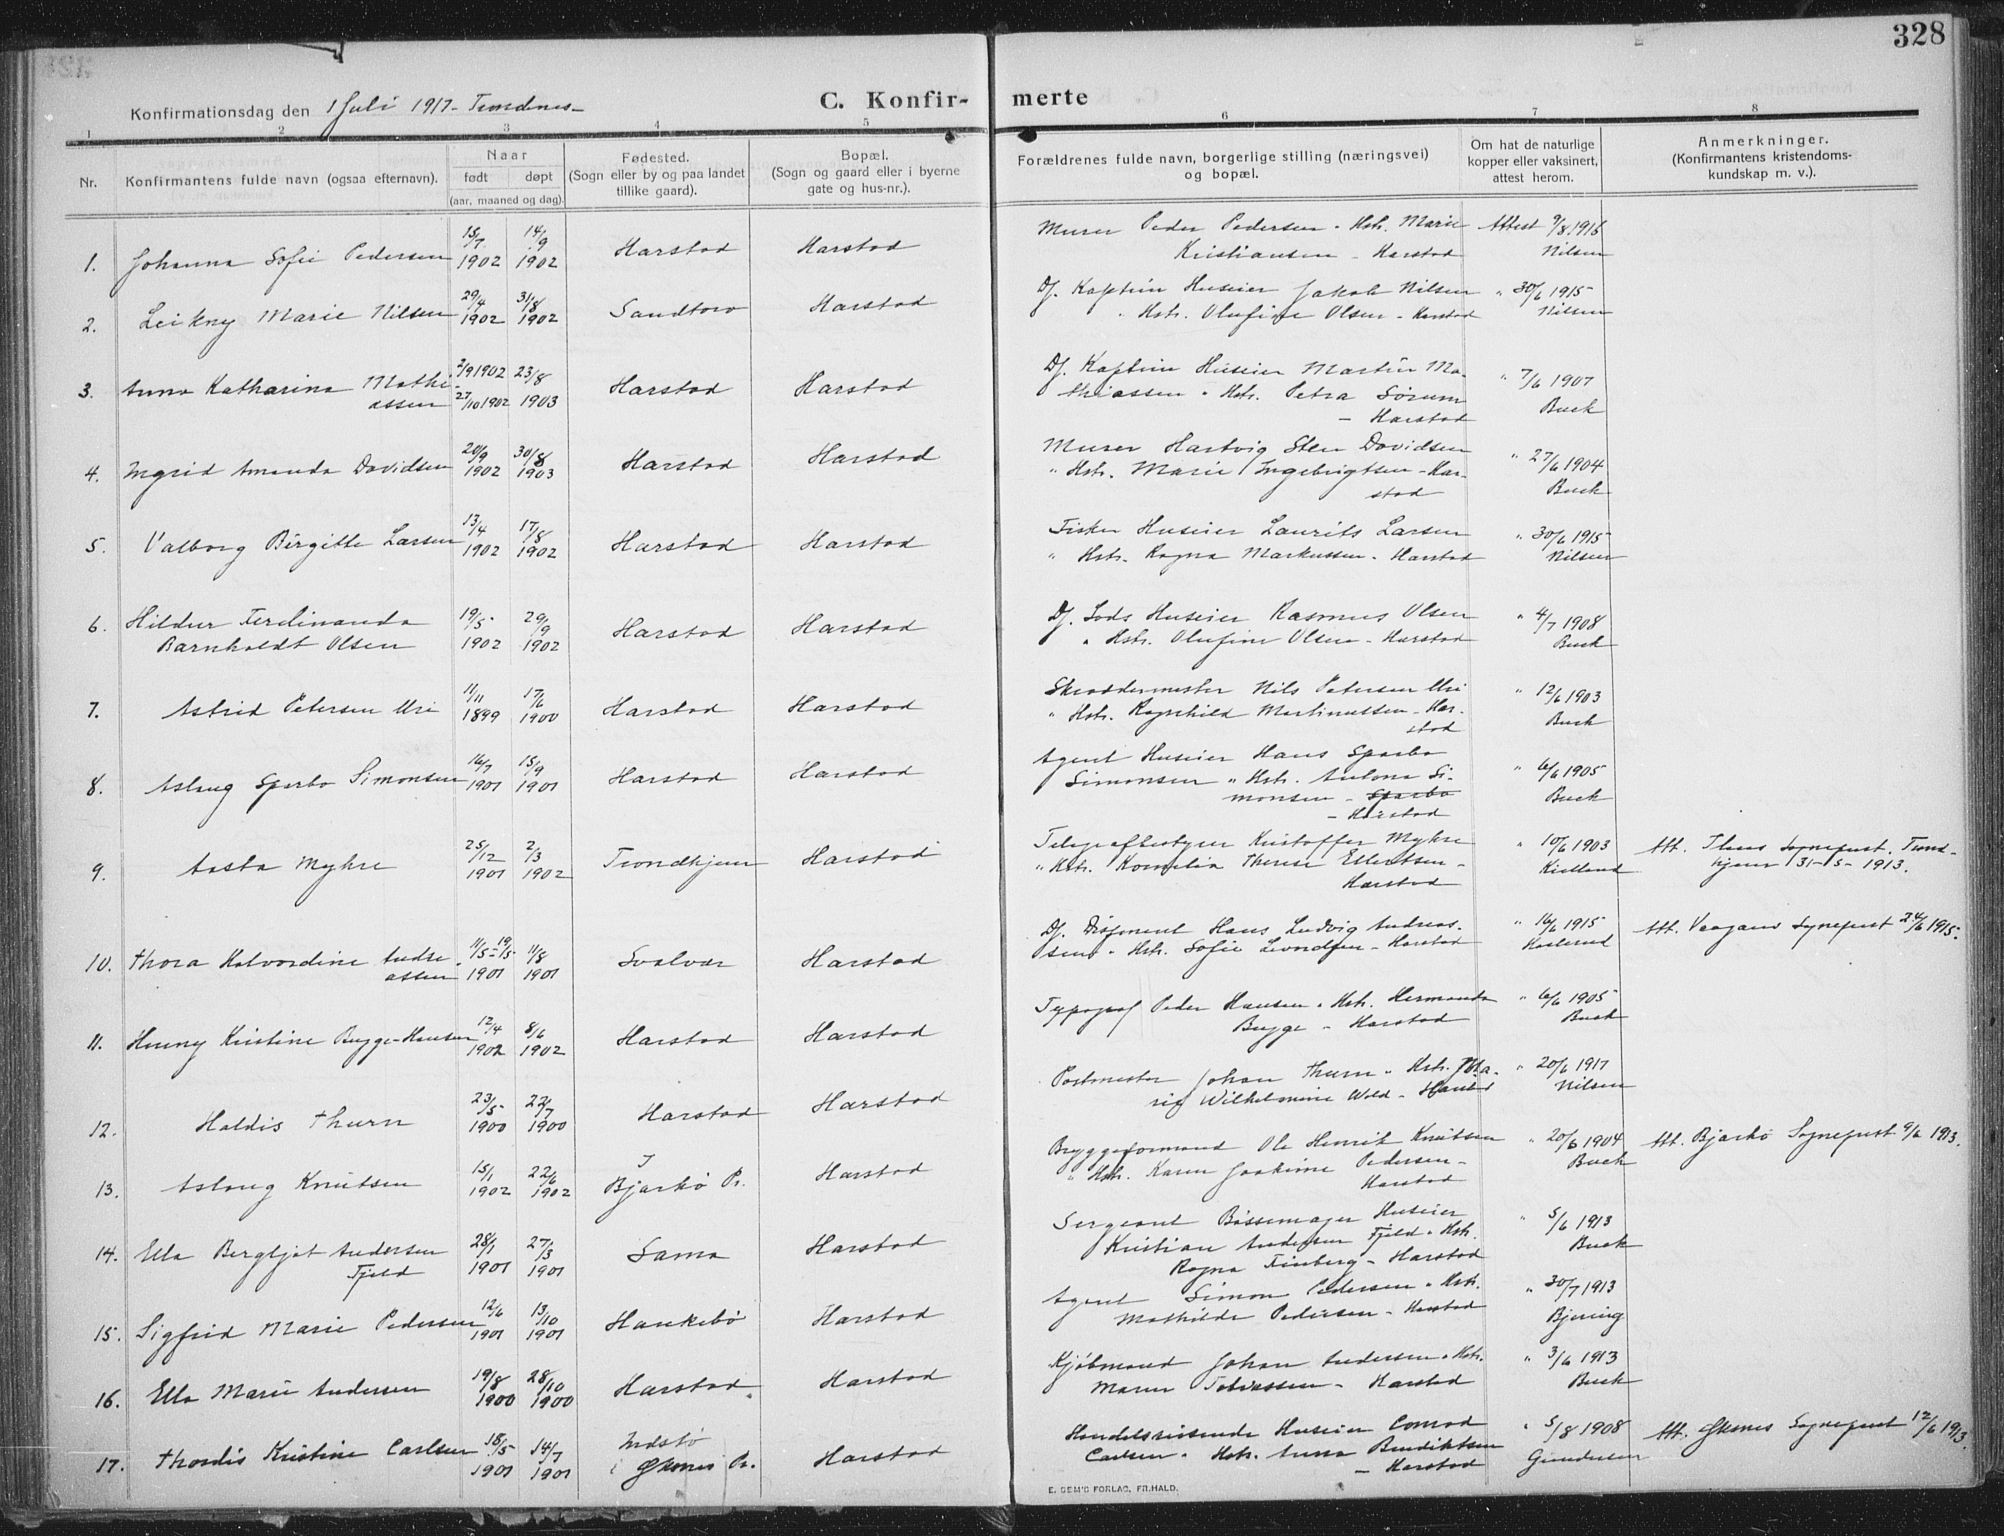 328
Konfirmationsdag den 1 Juli 1917 - Trondnes -
C. Konfir- merte
1 2 3 4 5 6 7 8
Nr.
Konfirmantens fulde navn (ogsaa efternavn).
Naar
født døpt
(aar, maaned og dag).
Fødested.
(Sogn eller by og paa landet
tillike gaard).
Bopæl.
(Sogn og gaard eller i byerne
gate og hus-nr.).
Forældrenes fulde navn, borgerlige stilling (næringsvei)
og bopæl.
Om hat de naturlige
kopper eller vaksinert,
attest herom.
Anmerkninger.
(Konfirmantens kristendoms-
kundskap m. v.).
1. Johanna Sofie Pedersen 15/7 1902 14/9 1902 Harstad Harstad
Murer Peder Pedersen " Hstr. Marie
Kristiansen - Harstad
Attest 9/8 1916
Nilsen
2. Leikny Marie Nilsen 29/4 1902 31/8 1902 Sandtorv Harstad
Df. Kaptein Huseier Jakob Nilsen
" Hstr. Olufine Olsen - Harstad
" 30/6 1915
Nilsen
3. Anna Katharina Mathi-
assen 2/9 1902 27/10 1902 23/8 1903 Harstad Harstad
Df. Kaptein Huseier Martin Ma-
thiassen " Hstr. Petra Sörum
- Harstad
" 7/6 1907
Buck
4. Ingrid Amanda Davidsen 20/9 1902 30/8 1903 Harstad Harstad
Murer Hartvig Sten Davidsen
" Hstr. Marie Ingebrigtsen - Har-
stad
" 27/6 1904
Buck
5. Valborg Birgitte Larsen 13/4 1902 17/8 1902 Harstad Harstad
Fisker Huseier Laurits Larsen
" Hstr. Ragna Markussen - Harstad
" 30/6 1915
Nilsen
6. Hildur Ferdinanda
Barnholdt Olsen 19/5 1902 29/9 1902 Harstad Harstad
Df. Lods Huseier Rasmus Olsen
" Hstr. Olufine Olsen - Harstad
" 4/7 1908
Buck
7. Astrid Petersen Uri 11/11 1899 17/6 1900 Harstad Harstad
Skræddermester Nils Petersen Uri
" Hstr. Ragnhild Martinussen - Har-
stad
" 12/6 1903
Buck
8. Aslaug Sparbo Simonsen 16/7 1901 15/9 1901 Harstad Harstad
Agent Huseier Hans Sparbo
Simonsen " Hstr. Antona Si-
monsen - Sparbo
- Harstad
" 6/6 1905
Buck
9. Aasta Myhre 25/12 1901 2/3 1902 Trondhjem Harstad
Telegrafbestyrer Kristoffer Myhre
" Hstr. Kornelia Therese Ellertsen -
Harstad
" 10/6 1903
Kielland
Att. Ilens Sogneprest. Trond-
hjem 31-5-1913.
10. Thora Halvordine Andre
assen 11/5-19/5 1901 11/8 1901 Svolvær Harstad
Df. Disponent Hans Ludvig Andreas-
sen " Hstr. Sofie - Harstad
" 16/6 1915
Att. Vaagans Sogneprest 24/6 1915.
11. Henny Kristine Bugge-Hansen 12/4 1902 8/6 1902 Harstad Harstad
Typograf Peder Hansen " Hstr. Hermanda
Bugge - Harstad
" 6/6 1905
Buck
12. Haldis Thurn 23/5 1900 22/7 1900 Harstad Harstad
Postmester Johan Thurn " Hstr. Ma-
rie Wilhelmine Wold - Harstad
" 20/6 1917
Nilsen
13. Aslaug Knutsen 15/1 1902 22/6 1902 I
Bjarkö Pr. Harstad
Bryggeformand Ole Henrik Knutsen
" Hstr. Karen Joakime Pedersen -
Harstad
" 20/6 1904
Buck
Att. Bjarkö Sogneprest 9/6 1913.
14. Ella Bergljot Andersen
Fjeld 28/1 1901 27/3 1901 Sama Harstad
Sergeant Bössemager Huseier
Kristian Andersen Fjeld " Hstr.
Ragna Finberg - Harstad
" 5/6 1913
Buck
15. Sigfrid Marie Pedersen 12/6 1901 13/10 1901 Haukebö Harstad
Agent Simon Pedersen " Hstr.
Mathilde Pedersen - Harstad
" 30/7 1913
Bjering
16. Ella Marie Andersen 19/8 1900 28/10 1900 Harstad Harstad
Kjöbmand Johan Andersen " Hstr.
Maren Tobiassen - Harstad
" 3/6 1913
Buck
17. Thordis Kristine Carlsen 18/5 1901 14/7 1901
i Øksnes Pr. Harstad
Handelsreisende Huseier Conrad
Carlsen " Hstr. Anna Bendiktsen
- Harstad
" 5/8 1908
Gundersen
Att. Øksnes Sogneprest 12/6 1913.
E. SEM'S FORLAG, FR.HALD.